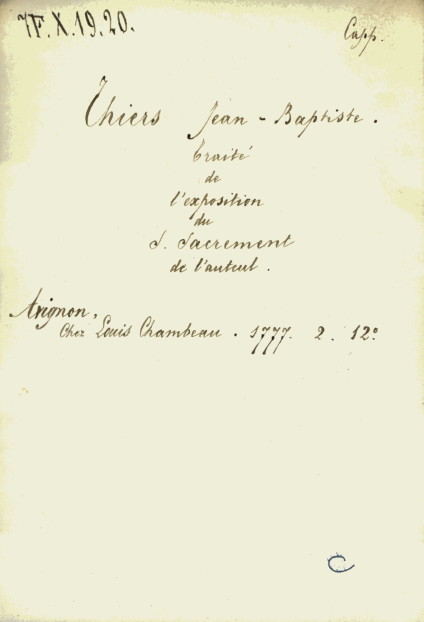 7F.X.19.20.
Capp.
Thiers Jean-Baptiste.
Traité
de
l'exposition
du
S. Sacrement
de l'auteul.
Avignon,
Chez Louis Chambeau. 1777. 2. 12°
C